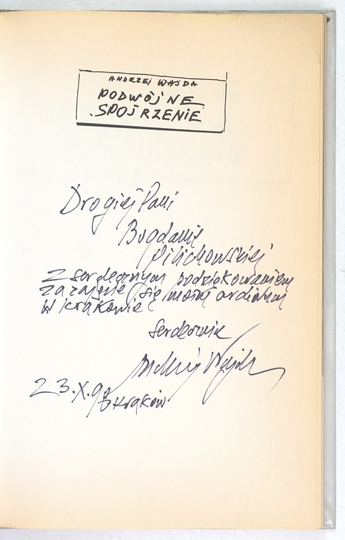 ANDRZEJ WAJDA
PODWÓJNE
SPOJRZENIE
Drogiej Pani
Bogdanie
Pilichowskiej
z serdecznym podziękowaniem
za zajęcie się moją
w Krakowie
Serdecznie
Andrzej Wajda
23.X.98
Kraków